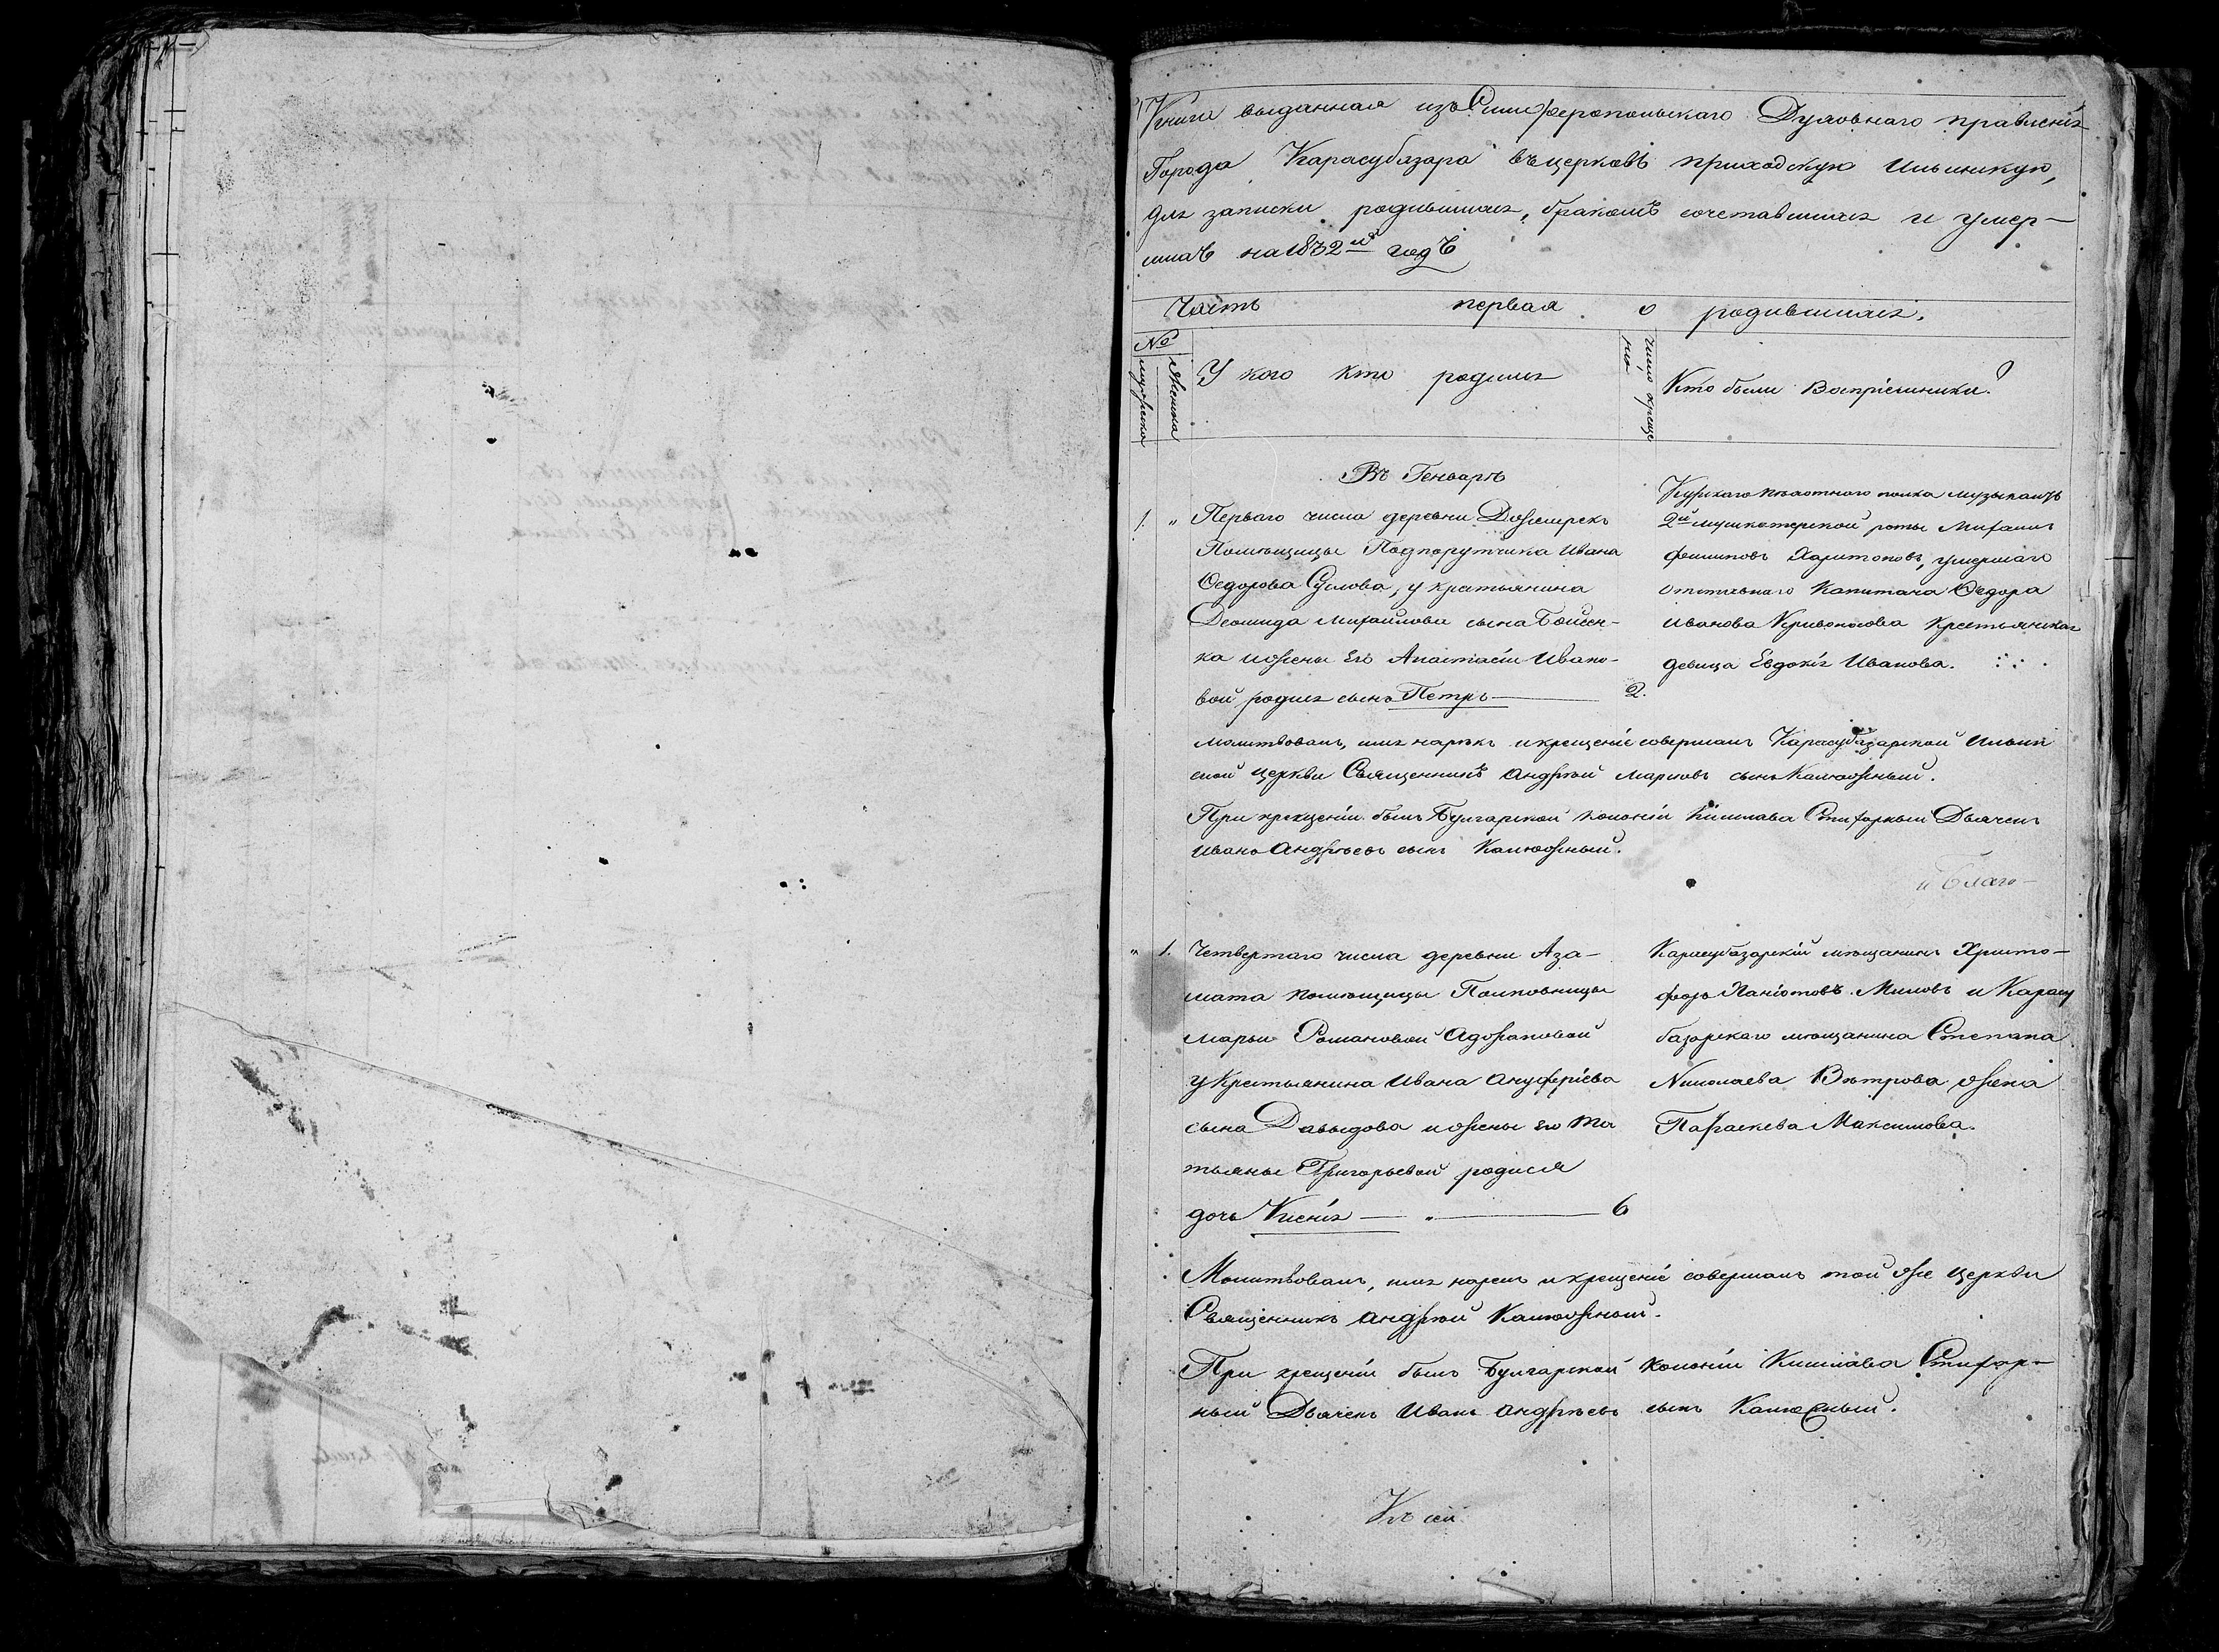 Книга выданная изъ Симферопольскаго Духовнаго правленія
Города Карасубазара въ церковь приходскую Ильинскую,
для записки родившихся, бракомъ сочетавшихся и умер-
шихъ на 1832й годъ
Часть первая о родившихся.
№
мужеска
женска
У кого кто родился
число креще
нія
Кто были Воспріемники?
Въ Генварѣ
1. " Перваго числа деревни
Помѣщицы Подпорутчика Ивана
Ѳедорова Суслова, у крестьянина
Деомида Михайлова сына Бойчен-
ка и жены его Анастасіи Ивано-
вой родился сынъ Петръ — 2.
Курскаго пѣхотнаго полка музыкантъ
2й мушкатерской роты Михаилъ
Филиповъ Харитоновъ, умершаго
отставнаго Капитана Ѳедора
Иванова Кривоносова Крестьянская
девица Евдокія Иванова.
Молитвовалъ, имя нарѣкъ и крещеніе совершалъ Карасубазарской Ильин
ской церкви Священникъ Андрѣй Марковъ сынъ Калюжный.
При крещеніи былъ Булгарской колоніи Кишлава Стихарный Дьячекъ
Иванъ Андрѣевъ сынъ Калюжный.
и Благо-
" 1. Четвертаго числа деревни Аза-
мата помѣщицы Полковницы
Марьи Романовой Адожановой
у Крестьянина Ивана Ануфріева
сына Давыдова и жены его Та
тьяны Григорьевой родися
дочь Ксенія — " — 6
Карасубазарскій мѣщанинъ Христо-
форъ Паніотовъ Миловъ и Карасу
базарскаго мѣщанина Степана
Николаева Вѣтрова жена
Параскева Максимова.
Молитвовалъ, имя нарекъ и крещеніе совершалъ той же церкви
Священникъ Андрѣй Калюжный.
При крещеніи былъ Булгарской колоніи Кишлава Стихар-
ный Дьячекъ Иванъ Андрѣевъ сынъ Калюжный.
Къ сей